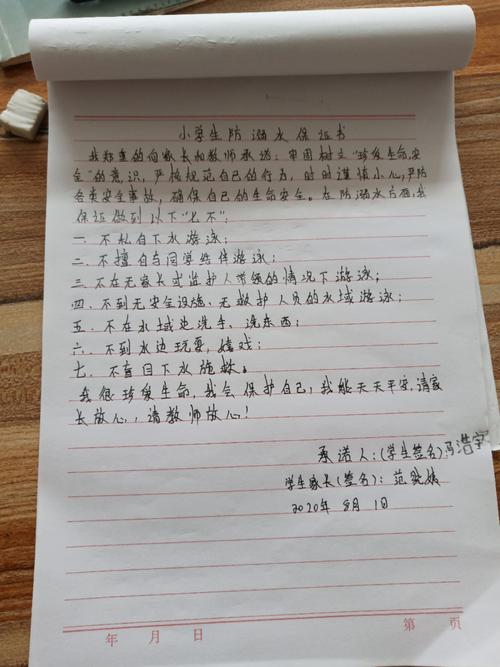 小学生防溺水保证书
我郑重的向家长和教师承诺：牢固树立“珍爱生命，安
全”的意识，严格规范自己的行为，时时谨慎小心，严防
各类安全事故，确保自己的生命安全。在防溺水方面，我
保证做到以下“七不”：
一．不私自下水游泳；
二．不擅自与同学结伴游泳；
三．不在无家长或监护人带领的情况下游泳；
四．不到无安全设施、无救护人员的水域游泳；
五．不在水域边洗手、洗东西；
六．不到水边玩耍，嬉戏；
七．不盲目下水施救。
我很珍爱生命，我会保护自己，我能天天平安，请家
长放心，请教师放心！
承诺人：（学生签名）冯浩宇
学生家长（签名）：范
2020年8月1日
年 月 日
第 页